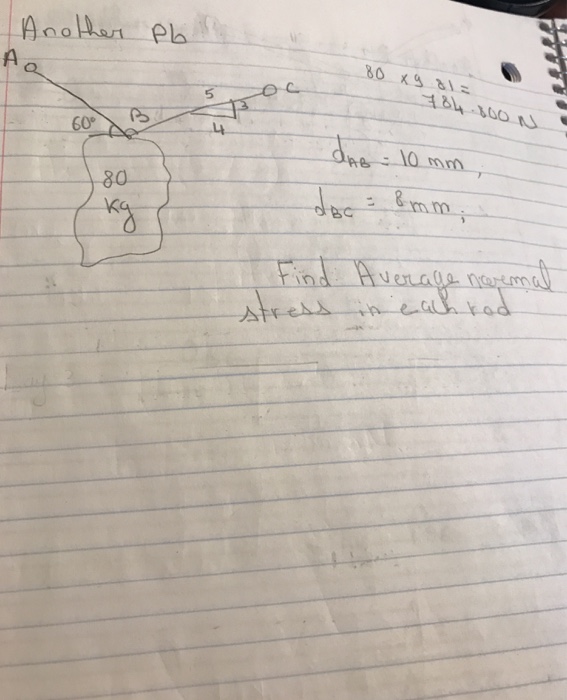 Another Pb
A
C
5
3
4
B
60°
80 x 9.81 =
784.800 N
80
Kg
dAB = 10 mm,
dBC = 8mm;
Find: Average normal
stress in each rod